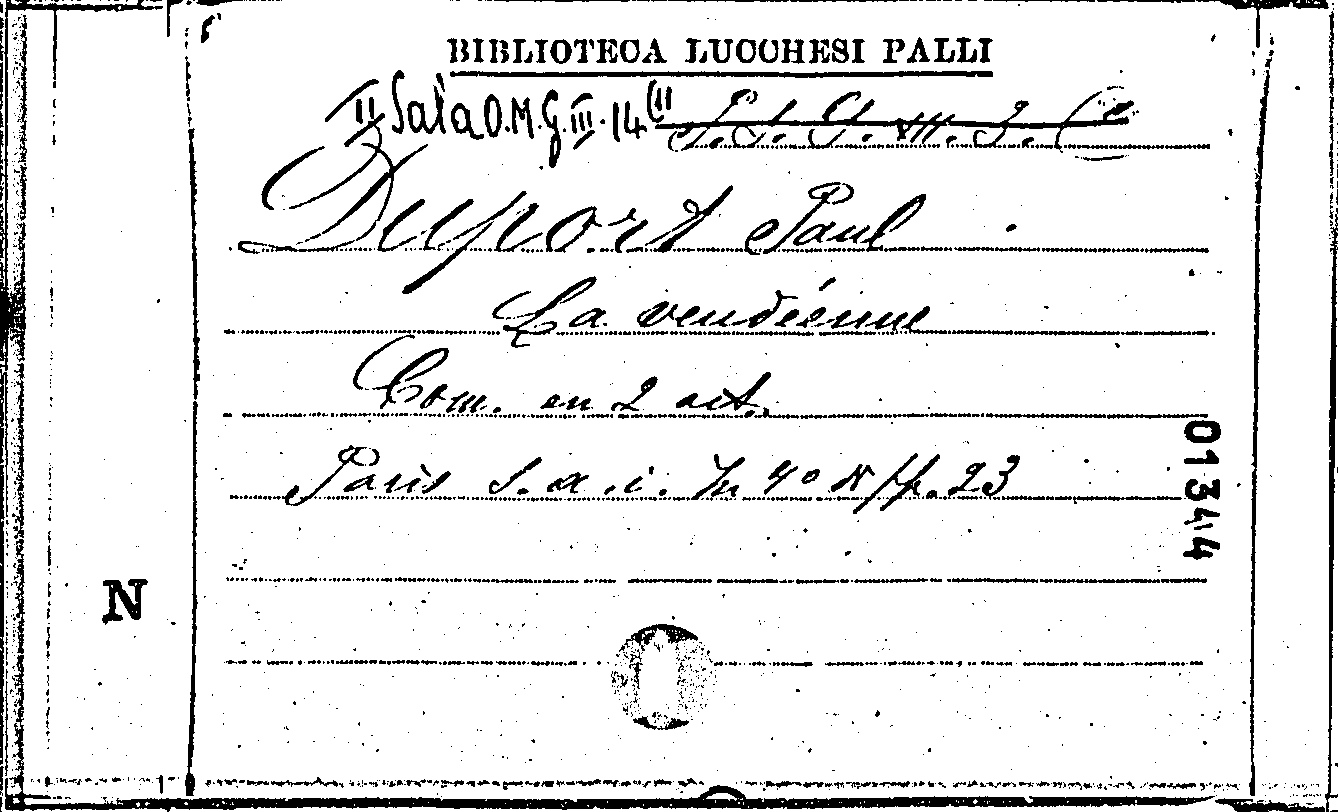 BIBLIOTECA LUCCHESI PALLI
II Sala O.M.G.III.14(11
Duport Paul
La vendéenne
Com. en 2 act.
Paris s. a. i. In 4° pp. 23
01344
N